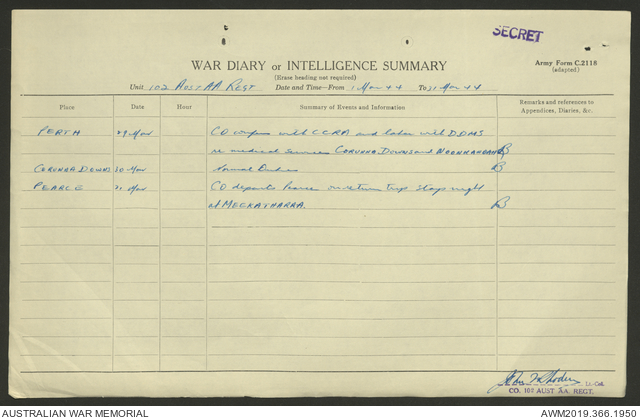 SECRET
WAR DIARY or INTELLIGENCE SUMMARY
Army Form C.2118
(adapted)
(Erase heading not required)
Unit 102 AUST AA REGT Date and Time—From 1 Mar 44 To 31 Mar 44
Place Date Hour Summary of Events and Information Remarks and references to
Appendices, Diaries, &c.
PERTH 29 Mar CO confers with CCRA and later with DDMS
re medical services CORUNNA DOWNS and NOONKANBAH
CORUNNA DOWNS 30 Mar Normal Duties
PEARCE 31 Mar CO departs Pearce on return trip stays night
at MEEKATHARRA.
Lt-Col.
CO. 102 AUST AA. REGT.
AUSTRALIAN WAR MEMORIAL
AWM2019.366.1950